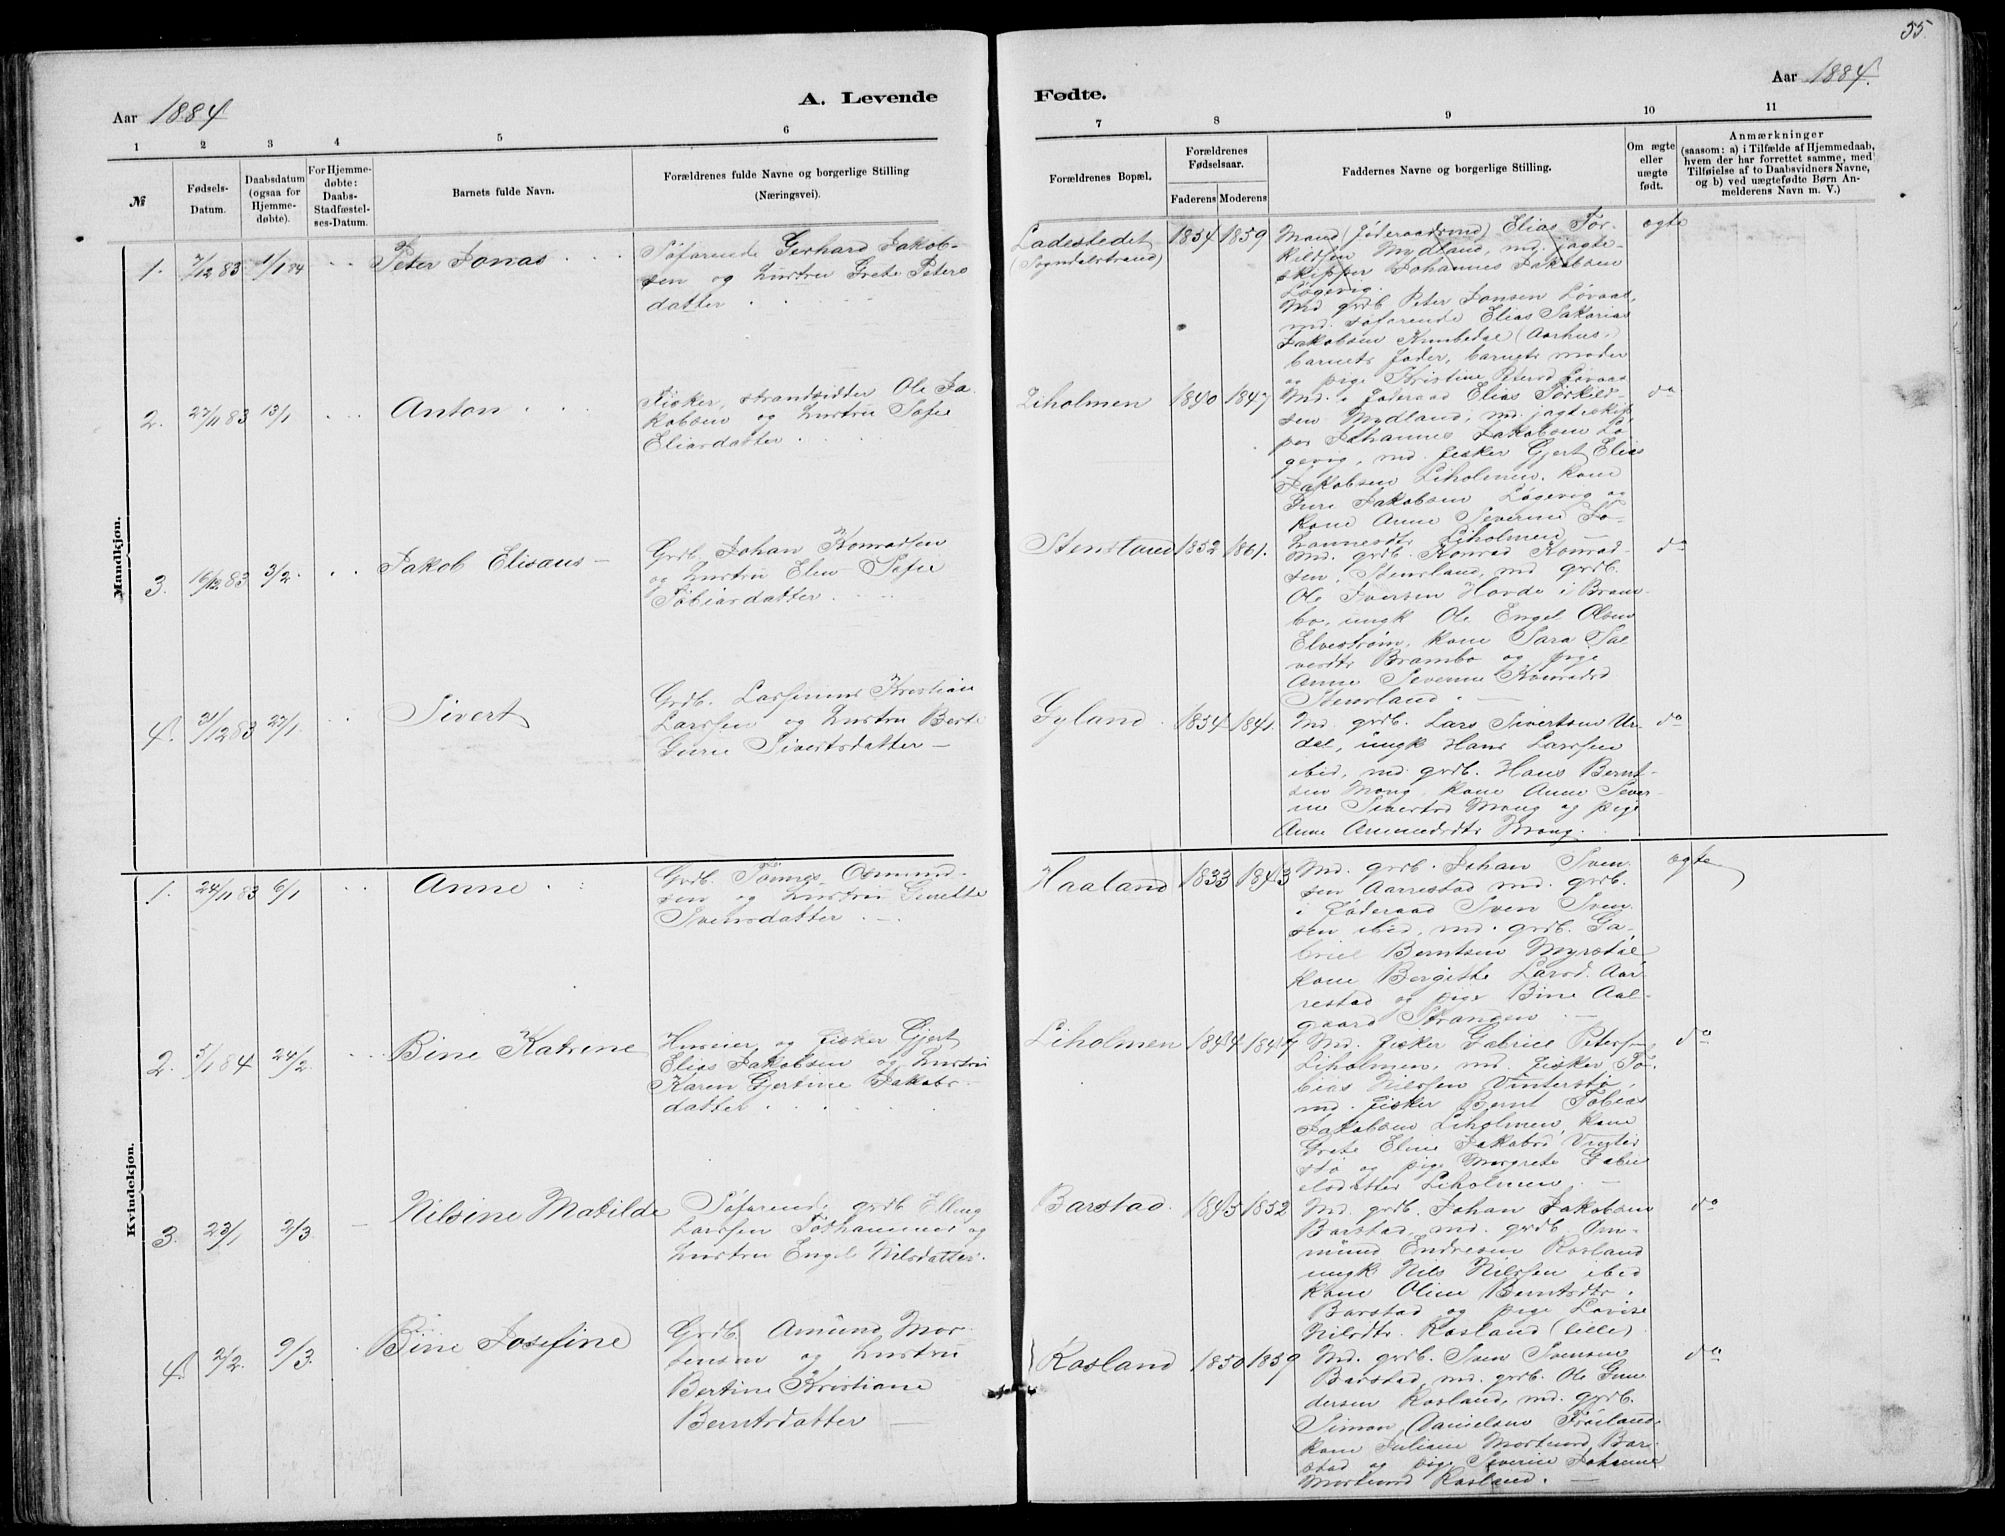 55.
Aar 1884
A. Levende
Fødte.
Aar 1884.
1 2 3 4 5 6 7 8 9 10 11
№
Fødsels-
Datum.
Daabsdatum
(ogsaa for
Hjemme-
døbte).
For Hjemme-
døbte:
Daabs-
Stadfæstel-
ses-Datum.
Barnets fulde Navn.
Forældrenes fulde Navne og borgerlige Stilling
(Næringsvei).
Forældrenes Bopæl.
Forældrenes
Fødselsaar.
Faderens Moderens
Faddernes Navne og borgerlige Stilling.
Om ægte
eller
uægte
født.
Anmærkninger
(saasom: a) i Tilfælde af Hjemmedaab,
hvem der har forrettet samme, med
Tilføielse af to Daabsvidners Navne,
og b) ved uægtefødte Børn An-
melderens Navn m. V.)
Mandkjøn.
1. 7/12 83 1/1 84 Peter Jonas
Søfarende Gerhard Jakob-
sen og hustru Grete Peters
datter
Ladestedet
(Sogndalstrand)
1854 1859
Mand (føderaadsmd) Elias Tor-
kildsen Mydland, md. jagte-
skipper Johannes Jakobsen
Løgevig.
Md grdb Peter Jonsen Løvaas,
md. søfarende Elias Sakarias
Jakobsen (Aarhus,)
barnets fader, barnets moder
og pige Kristine Petersd Løvaas
ægte
2. 27/11 83 13/1 Anton
Fisker, strandsidder Ole Ja
kobsen og hustru Sofie
Eliasdatter
Liholmen 1840 1847
Md. i føderaad Elias Torkild-
sen Mydland, md. jagtskip
per Johannes Jakobsen Lø
gevig, md. fisker Gjert Elias
Jakobsen Liholmen, kone
Gure Jakobsen Løgevig og
kone Anne Severine Jo-
hannesdtr Liholmen
do
3. 16/12 83 3/2 Jakob Elisæus
Grdb. Johan Konradsen
og hustru Elen Sofie
Tobiasdatter
Stensland 1852 1861.
Md. grdb. Konrad Konrad-
sen Stensland, md grdb.
Ole Iversen Hovde i Bram-
bo, ungk Ole Engel Olsen
Elvestrøm, kone Sara Sal
versdtr Brambo og pige
Anne Severine Konradsd
Stensland.
do
4. 31/12 83 27/1 Sivert
Grdb. Larsenius Kristian
Larssen og hustru Berte
Gurie Sivertsdatter
Gyland. 1854 1841.
Md. grdb. Lars Sivertsen Ur
dal, ungk Hans Larssen
ibid, md. grdb. Hans Bernt-
sen Mong, kone Anne Sever-
ine Sivertsd Mong og pige
Anne Ammedsdtr Mong.
do
Kvindekjøn.
1. 24/11 83 6/1 Anne
Grdb. Tønnes Osmund-
sen og hustru Gurette
Svensdatter
Haaland 1833 1843
Md. grdb. Johan Sven
sen Aarrestad md. grdb.
i føderaad Sven Sven
sen ibid, md. grdb. Ga-
briel Berntsen Myrstøl
kone Bergitte Larsd. Aar
restad og pige Bine Aal-
gaard Stranden
ægte
2. 5/1 84 24/2 Bine Katrine
Huseier og fisker Gjert
Elias Jakobsen og hustru
Karen Gjertine Jakobs-
datter
Liholmen 1844 1847
Md. fisker Gabriel Petersen
Liholmen, md. fisker To-
bias Nilssen Vinterstø,
md. fisker Bernt Tobias
Jakobsen Liholmen, kone
Grete Eline Jakobsd Vinter
stø og pige Margrete Gabri
elsdatter Liholmen
do
3. 23/1 2/3 Nilsine Matilde
Søfarende, grdb Elling
Larssen Tothammer og
hustru Engel Nilsdatter.
Barstad. 1845 1852
Md. grdb. Johan Jakobsen
Barstad, md. grdb. Om-
mund Endresen Rosland
ungk. Nils Nilssen ibid
kone Oline Berntsdtr.
Barstad og pige Lovise
Nilsdtr. Rosland (lille).
do
4. 2/2. 9/3. Bine Josefine
Grdb. Amund Mor-
tensen og hustru
Bertine Kristiane
Berntsdatter
Rosland 1850 1859
Md. grdb. Sven Svensen
Barstad, md. grdb. Ole Gun
dersen Rosland, md. grdb.
Simon Danielsen Frøiland.
kone Juliane Mortensd. Bar-
stad og pige Severine Johanne
Mortensd Rosland.
do